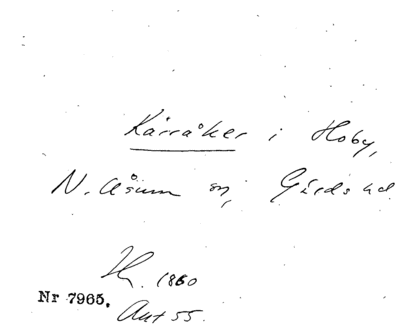 Kärråker i Hoby,
N. Åsum sn, Gärds hd.
H. 1860
Nr 7965.
Ant 55.